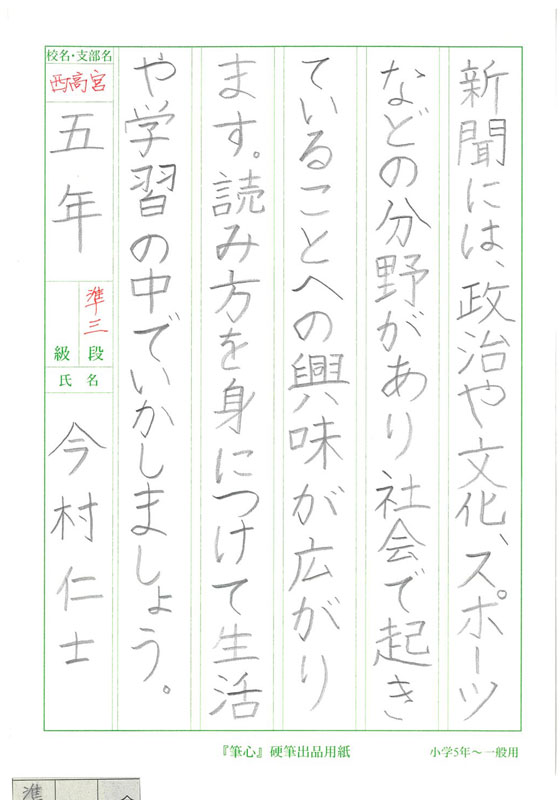 新聞には、政治や文化、スポーツ
などの分野があり社会で起き
ていることへの興味が広がり
ます。読み方を身につけて生活
や学習の中でいかしましょう。
校名・支部名
西高宮
五年
準三
段
級
氏名
今村仁士
『筆心』硬筆出品用紙
小学5年～一般用
準